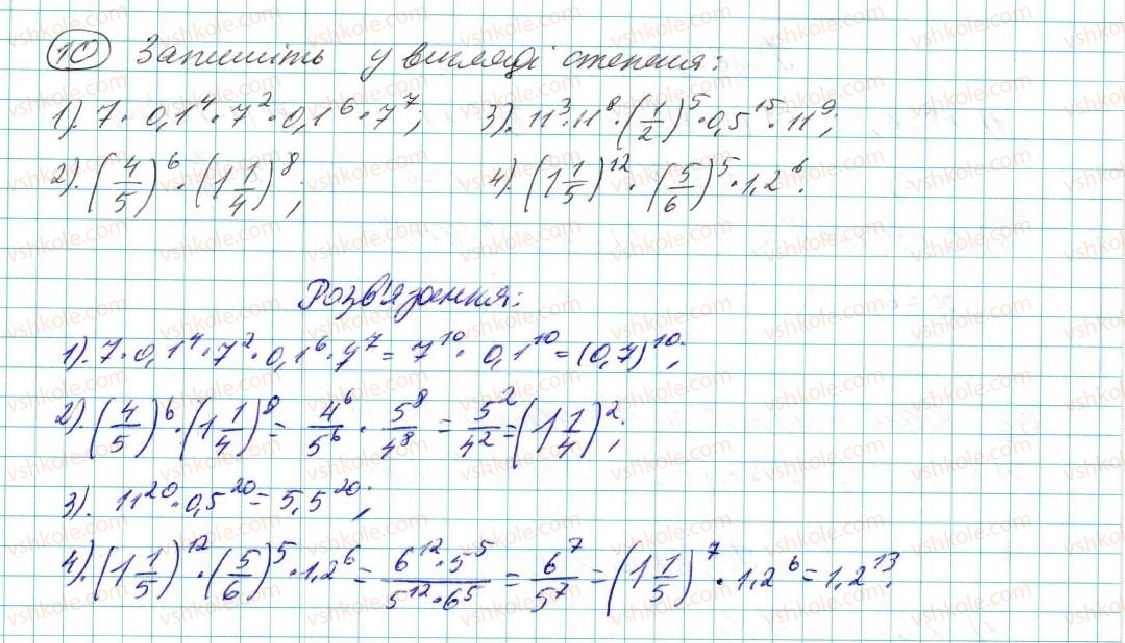 10 Запишіть у вигляді степеня:
1). 7 · 0,1^4 · 7^2 · 0,1^6 · 7^7; 3). 11^3 · 11^8 · (1/2)^5 · 0,5^15 · 11^9;
2). (4/5)^6 · (1 1/4)^8; 4). (1 1/5)^12 · (5/6)^5 · 1,2^6.
Розв'язання:
1). 7 · 0,1^4 · 7^2 · 0,1^6 · 7^7 = 7^10 · 0,1^10 = (0,7)^10;
2). (4/5)^6 · (1 1/4)^8 = 4^6/5^6 · 5^8/4^8 = 5^2/4^2 = (1 1/4)^2;
3). 11^20 · 0,5^20 = 5,5^20;
4). (1 1/5)^12 · (5/6)^5 · 1,2^6 = 6^12 · 5^5 / 5^12 · 6^5 = 6^7/5^7 = (1 1/5)^7 · 1,2^6 = 1,2^13.
vshkole.com